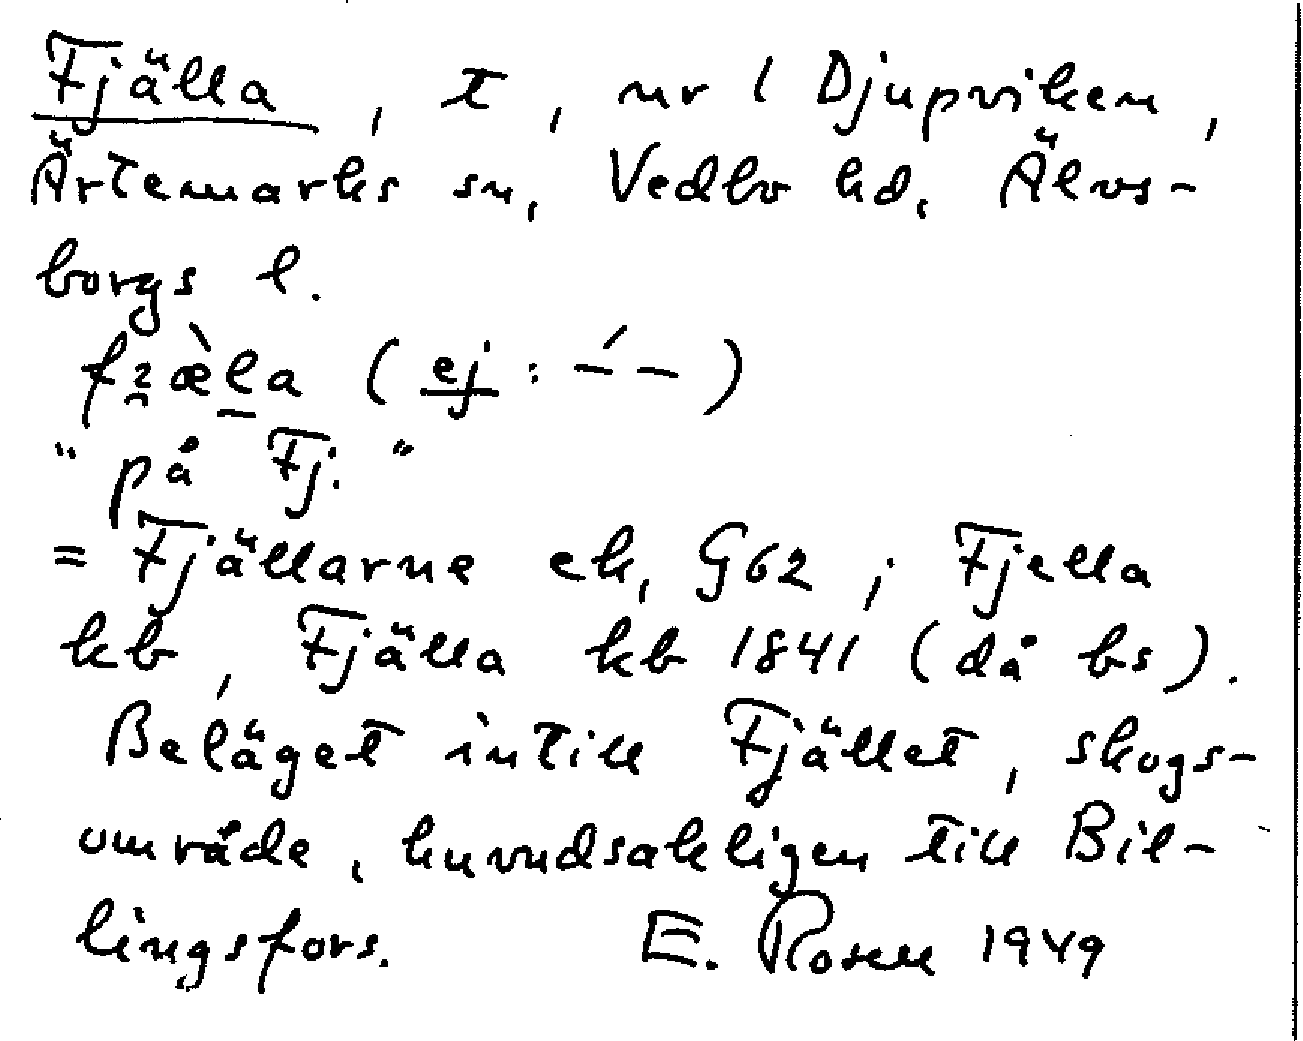 Fjälla, t, nr 1 Djupviken,
Ärtemarks sn, Vedbo hd, Älvs-
borgs l.
(ej: –́ –)
"på Fj."
= Fjällarne ek, G62; Fjella
kb, Fjälla kb 1841 (då bs).
Beläget intill Fjället, skogs-
område, huvudsakligen till Bil-
lingsfors. E. Rosell 1949